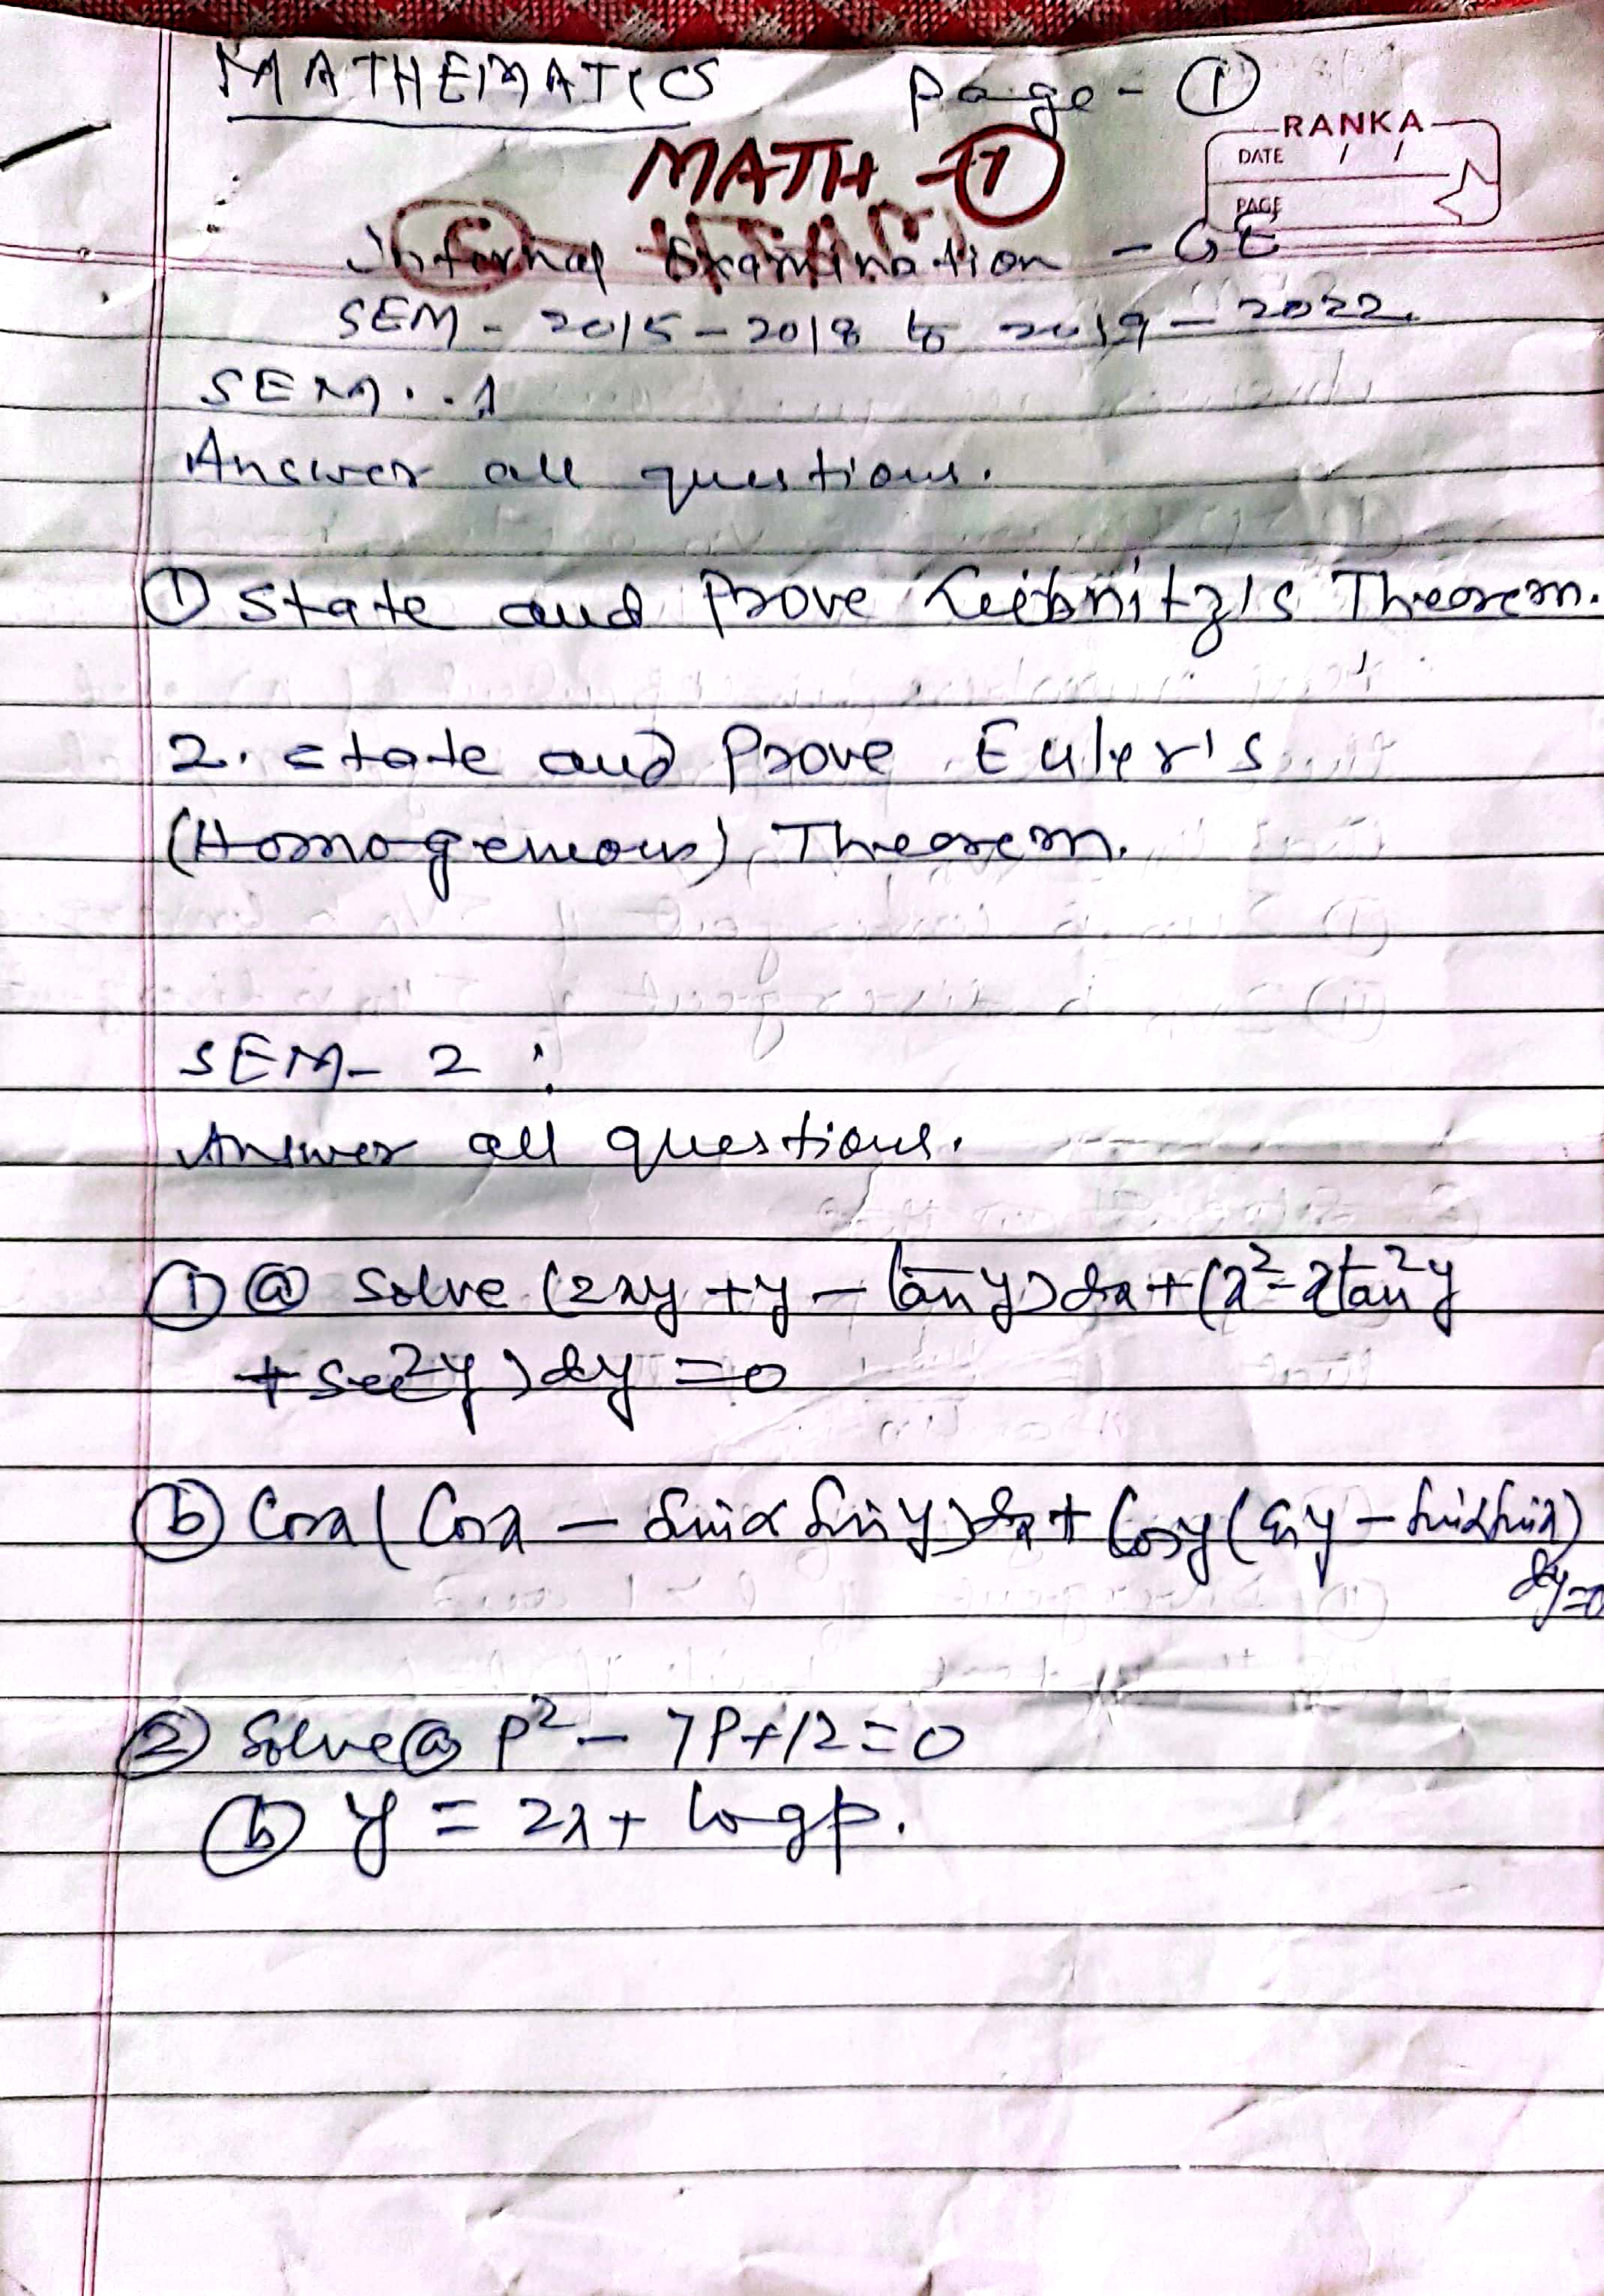 MATHEMATICS Page - ①
RANKA
DATE / /
PAGE
MATH - ①
Internal Examination - GE
SEM - 2015-2018 to 2019-2022.
SEM..1
Answer all questions.
① State and Prove Leibnitz's Theorem.
2. State and Prove Euler's
(Homogeneous) Theorem.
SEM- 2 :
Answer all questions.
① ⓐ Solve (2xy + y - tan y) dx + (x² - x tan² y
+ sec² y) dy = 0
ⓑ Cos x ( Cos x - Sin α Sin y) dx + Cos y ( Cos y - Sin α Sin x)
dy = 0
② Solve ⓐ P² - 7P + 12 = 0
ⓑ y = 2x + log p.